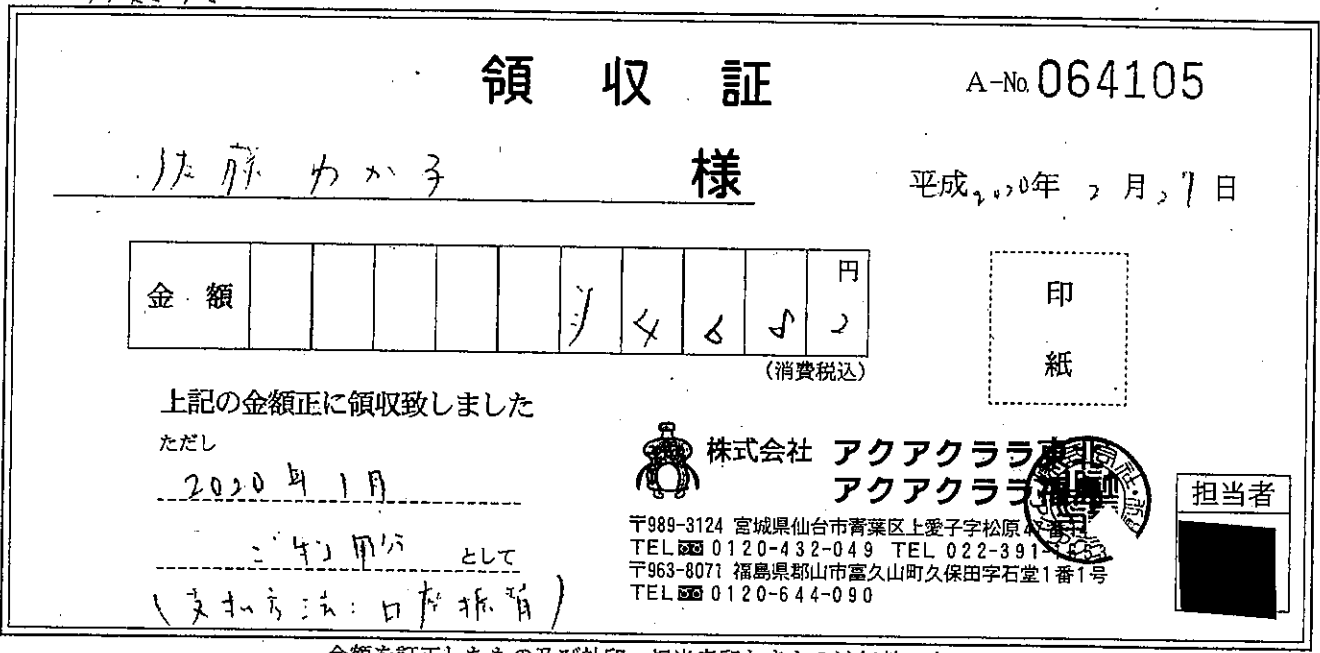 領収証
A-No.064105
佐藤わか子 様
平成2020年2月27日
金額 ¥4682円
(消費税込)
印紙
上記の金額正に領収致しました
ただし
2020年1月
ご利用分 として
(支払方法:口座振替)
株式会社 アクアクララ東北
アクアクララ
〒989-3124 宮城県仙台市青葉区上愛子字松原47番
TEL 0120-432-049 TEL 022-391-
〒963-8071 福島県郡山市富久山町久保田字石堂1番1号
TEL 0120-644-090
担当者